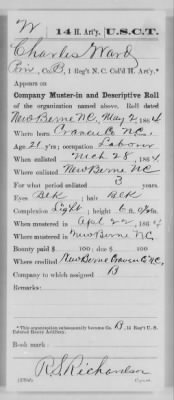 W | 14 H. Art'y. | U.S.C.T.
Charles Ward
Priv, Co. B, 1 Reg't N. C. Col'd H. Art'y.*
Appears on
Company Muster-in and Descriptive Roll
of the organization named above. Roll dated
New Berne N.C., May 2, 1864
Where born Craven Co N.C.
Age 21 y'rs; occupation Laborer
When enlisted Mch 28, 1864
Where enlisted New Berne N.C.
For what period enlisted 3 years.
Eyes Blk; hair Blk
Complexion Light; height 6 ft. in.
When mustered in Apl 22, 1864
Where mustered in New Berne N.C.
Bounty paid $ 100; due $ 100
Where credited New Berne Craven Co N.C.
Company to which assigned B
Remarks:
*This organization subsequently became Co. B, 14 Reg't U. S. Colored Heavy Artillery.
Book mark:
R S Richardson
Copyist.